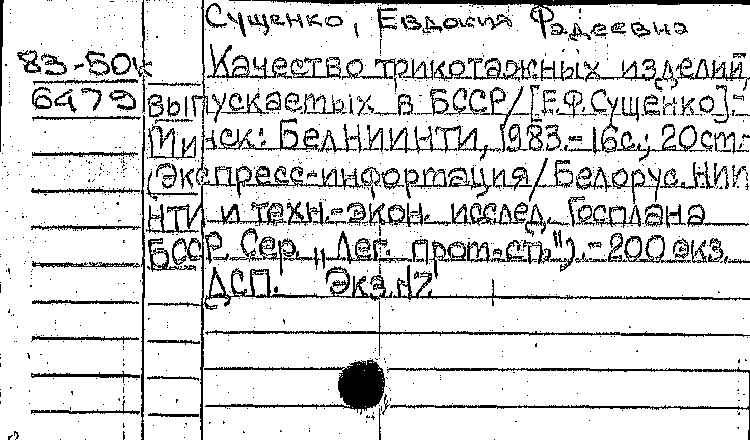 Сущенко, Евдокия Фадеевна
83-50к Качество трикотажных изделий,
6479 выпускаемых в БССР/[Е.Ф.Сущенко].-
Минск: БелНИИНТИ, 1983.-16с.; 20см.-
(Экспресс-информация/Белорус. НИИ
НТИ и техн.-экон. исслед. Госплана
БССР. Сер. „Лег. пром-сть").-200 экз.
ДСП. Экз.№2